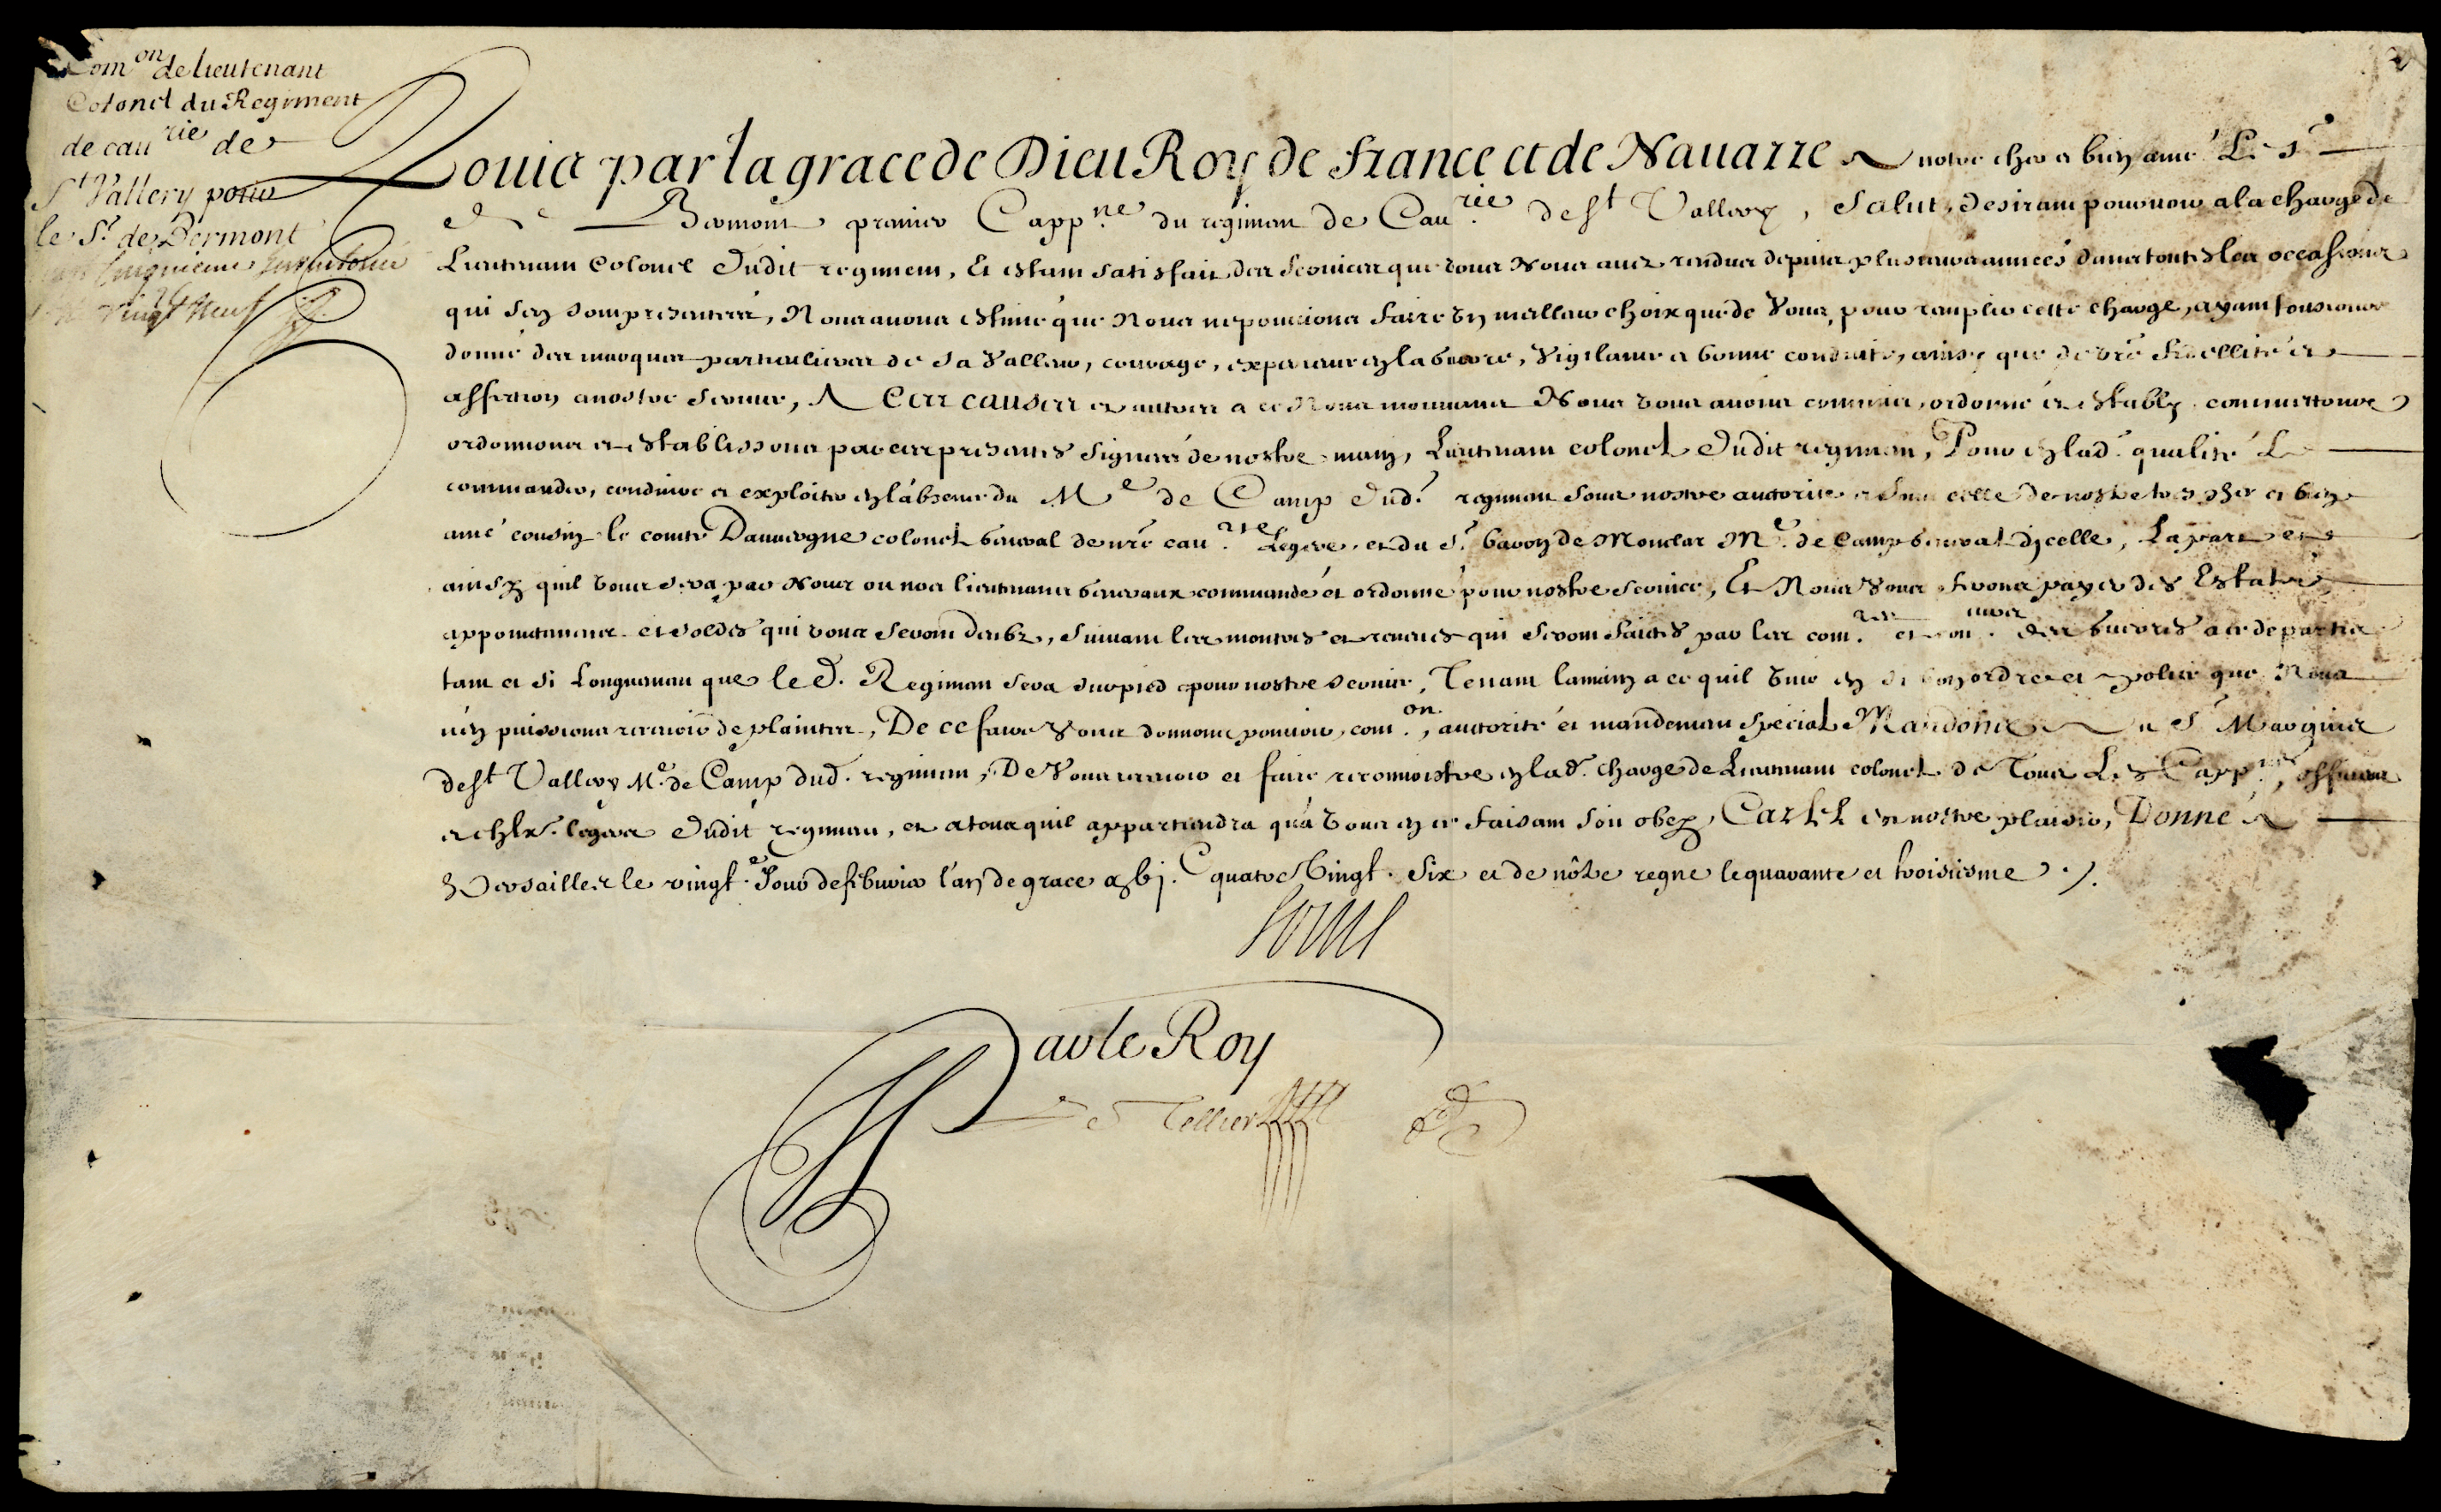 Com.on de lieutenant
Colonel du Regiment
de cau.rie de
St Vallery pour
le Sr. de Bermont
vingt Neuf
Louis par la grace de Dieu Roy de france et de Nauarre A notre cher et bien amé Le Sr
de Bermont premier Capp.ne du regiment de Cau.rie de St Vallery, Salut, Desirant pouruoir a la charge de
Lieutenant Colonel dudit regiment, Et estant satisfait des seruices que vous Nous auez rendus depuis plusieurs années dans toutes les occasions
qui s'en sont presentées, Nous auons estimé que Nous ne pouuions faire vn meilleur choix que de Vous, pour remplir cette charge, ayant tousiours
donné des marques particulieres de sa Valleur, courage, experience en la guerre, vigilance et bonne conduite, ainsy que de vre fidellité et
affection a nostre seruice, A Ces causes et autres a ce Nous mouuans Nous vous auons commis, ordonné et estably, commettons
ordonnons et establissons par ces presentes signées de nostre main, Lieutenant colonel dudit regiment, Pour en lad. qualité Le
commander, conduire et exploiter en l'absence du Me de Camp dud. regiment sous nostre autorité et sous celle de nostre tres cher et bien
amé cousin le comte Dauuergne colonel general de nre cau.rie Legere, et du Sr. baron de Monclar Me. de Camp general d'icelle, La part et
ainsy quil vous sera par Nous ou nos lieutenans generaux commandé et ordonné pour nostre seruice, Et Nous vous ferons payer des Estats
appointemens et soldes qui vous seront deubz, suiuant les monstres et reueues qui seront faictes par les com.res et con des guerres a ce departis
tant et si longuement que led. Regiment sera sur pied pour nostre seruice, Tenant la main a ce quil viue en si bon ordre et police que Nous
n'en puissions receuoir de plaintes, De ce faire Vous donnons pouuoir, com.on, auctorité et mandement special Mandons au Sr Marquis
de St Vallery Me. de Camp dud. regiment, De Vous receuoir et faire reconnoistre en lad. charge de Lieutenant colonel de Tous Les Capp.nes, officiers
et chlx. legers dudit regiment, et a tous quil appartiendra qu'a vous en ce faisant soit obey, Car tel est nostre plaisir, Donné A
Versailles le vingt.e Jour de feburier l'an de grace mil vj.C quatre Vingt. Six et de nôtre regne le quarante et troisiesme ./.
Louis
Par le Roy
Le Tellier